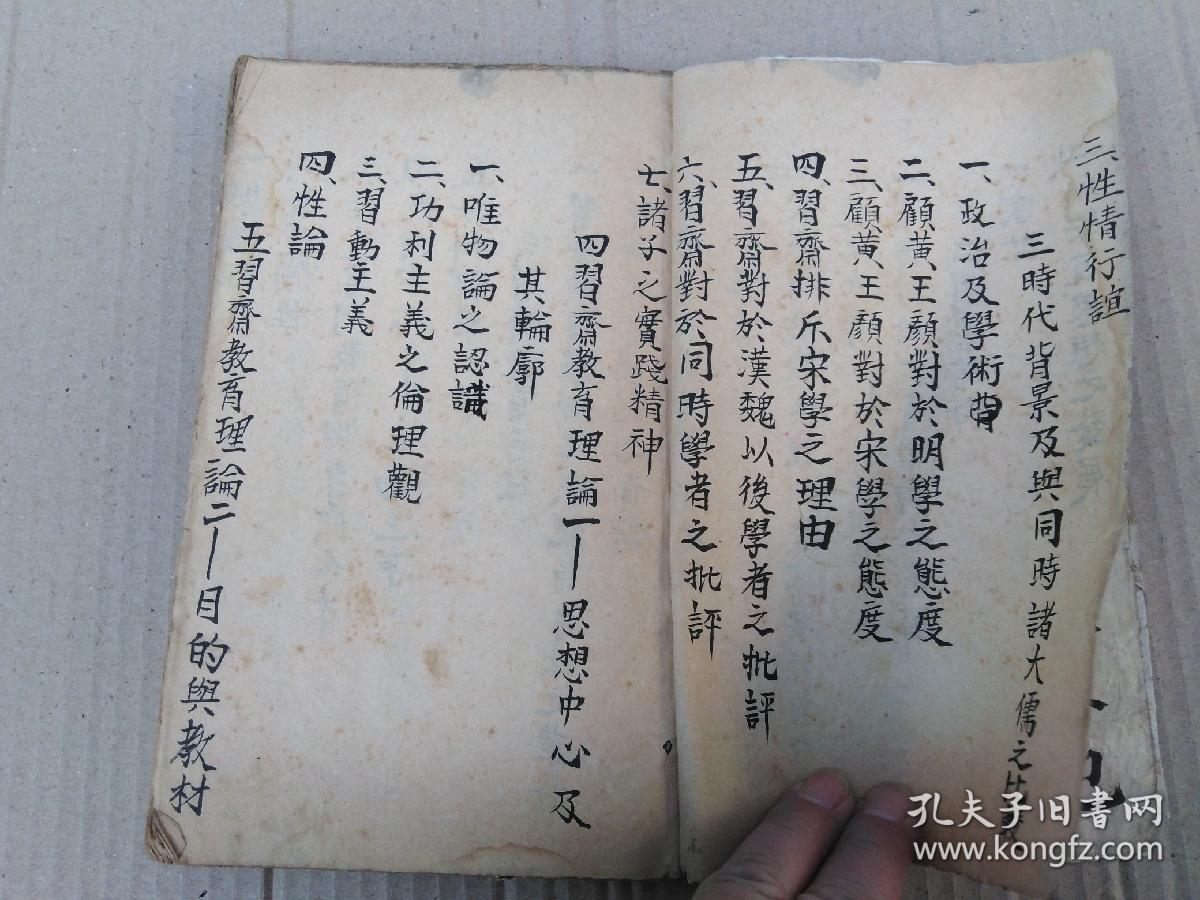 三、性情行誼
三時代背景及與同時諸大儒之比較
一、政治及學術背
二、顧黃王顏對於明學之態度
三、顧黃王顏對於宋學之態度
四、習齋排斥宋學之理由
五、習齋對於漢魏以後學者之批評
六、習齋對於同時學者之批評
七、諸子之實踐精神
四習齋教育理論一—思想中心及
其輪廓
一、唯物論之認識
二、功利主義之倫理觀
三、習動主義
四、性論
五習齋教育理論二—目的與教材
孔夫子旧书网
www.kongfz.com